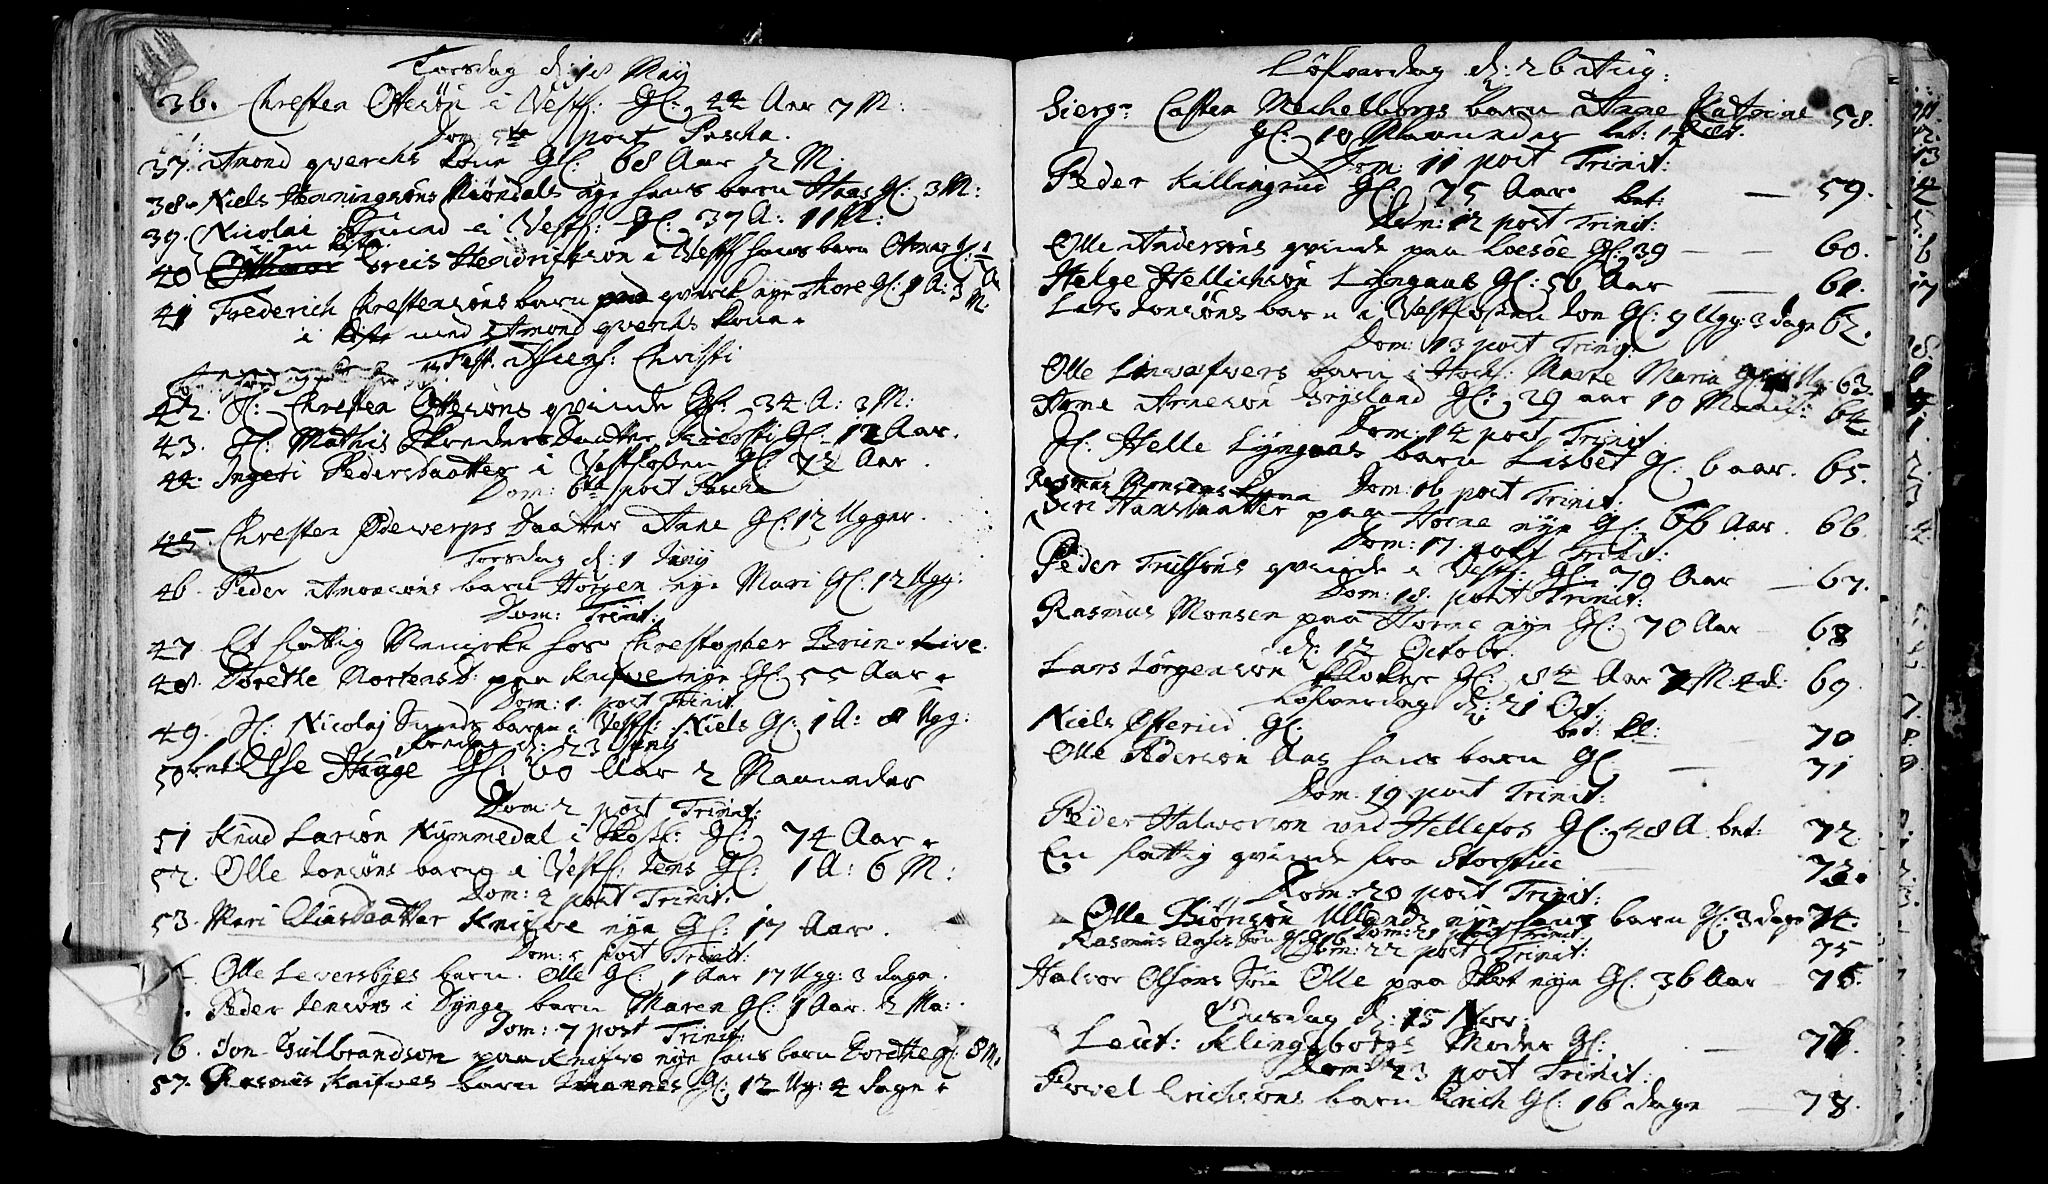 Torsdag d: 18 Maij
36. Chresten Ottesøn i Vestf: Gl: 44 Aar 7 M:
Dom 5te post Pascha.
37. Amond qverchs kone Gl: 68 Aar 2 M.
38. Niels Henningsøns Miøndals eye hans barn Haas Gl: 3 M:
39. Nicolai Sund i Vestf: Gl: 37 A: 11 M:
i en kiste
40 Loreis Hendrichsøn i Vestf hans barn Otmar Gl: 1/2 A
41 Frederich Chrestensøns barn qverch eye Tore Gl: 1 A: 3 M.
i kiste med Amond qverchs kone.
Fest. Ascens: Christi
42. Sl: Chresten Ottesøns qvinde Gl: 34 A: 3 M:
43. Sl: Mathis Skreders Daatter Kiersti Gl: 12 Aar.
44. Ingeri Pedersdaatter i Vestfossen Gl: 72 Aar.
Dom: 6te post Pascha
45. Chresten Ødewerps Daatter Anne Gl: 12 Uger.
Torsdag d: 1 Junij
46. Peder Amonsøns barn Horgen eye Mari Gl: 12 Ugg:
Dom: Trinit:
47. Et fattig Menniske hos Chrestopher Brun. Live.
48. Dorethe Mortensd: paa Knifve eye Gl: 55 Aar.
Dom: 1. post Trinit
49. Sl: Nicolaj Sunds barn i Vestf: Niels Gl: 1 A: 8 Ugg:
Fredag d: 23 Junij
50 bet Else Hauge Gl: 60 Aar 2 Maaneder
Dom: 2 post Trinit:
51 Knud Larsøn Nymmedal i Skotsel: Gl: 74 Aar.
52. Olle Jonsøns barn i Vestf: Jens Gl: 1 A: 6 M:
Dom: 4 post Trinit.
53. Mari Eliasdaatter Knifve eye Gl: 17 Aar.
Dom: 5 post Trinit:
Olle Leversbyes barn. Olle Gl: 1 Aar 17 Ugg: 3 dage.
Peder Jensøns i Dynge barn Maren Gl: 1 Aar 2 Ma:
Dom: 7 post Trinit:
56. Jon Gulbrandsøn paa Knifve eye hans barn Dorethe Gl: 8 M:
57. Rasmus Knifves barn Johannes Gl: 12 Ug: 4 dage.
Løfverdag d: 26 Aug:
Sierg: Casten Mechelborgs barn Anne Catrine 58.
Gl: 10 Maaneder bet:
Dom: 11 post Trinit:
Peder Killingrud Gl: 75 Aar bet: — 59.
Dom: 12 post Trinit:
Olle Andersøns qvinde paa Loesøe Gl: 39 — — 60.
Helge Hellichsøn Lyngaas Gl: 50 Aar — 61.
Lars Jonsøns barn i Vestfossen Jon Gl: 9 Ugg: 3 dage 62.
Dom: 13 post Trinit:
Olle barn i Hocks: Marte Maria 63.
Arne Arnesøn Grysland Gl: 29 aar 10 Maan: 64.
Dom: 14 post Trinit
Sl: Helle Lyngaas barn Lisbet Gl: 6 aar. 65.
Dom: 16 post Trinit:
Rasmus Monsens kone
Siri Hansdaatter paa Horne eye Gl: 66 Aar. 66.
Dom: 17. post Trinit:
Peder Trulsøns qvinde i Vestf: Gl: 70 Aar — 67.
Dom: 18. post Trinit:
Rasmus Monsen paa Horne eye Gl: 70 Aar 68
d: 12 Octobr.
Lars Jørgensøn Klocker Gl: 84 Aar 7 M: 4 d: 69.
Løfverdag d: 21 Oct:
Niels Østerud Gl: bet: 70
Olle Pedersøn Aas hans barn Gl — 71
Dom: 19 post Trinit:
Peder Halvorsøn ved Hellefos Gl: 48 A. bet: 72.
En fattig qvinde fra Storflue — 73.
Dom: 20 post Trinit:
Olle Biønsøn Ullands eye hans barn Gl: 3 dage 74.
Dom: 21 post Trinit
Rasmus 75
Dom: 22 post Trinit:
Halvor Olsøns Søn Olle paa Skot eye Gl. 36 Aar 76.
Onsdag d: 15 Nov:
Leut: Klingebergs Moder Gl: — 77.
Dom: 23 post Trinit:
Povel Erichsøns barn Erich Gl: 16 dage — 78.